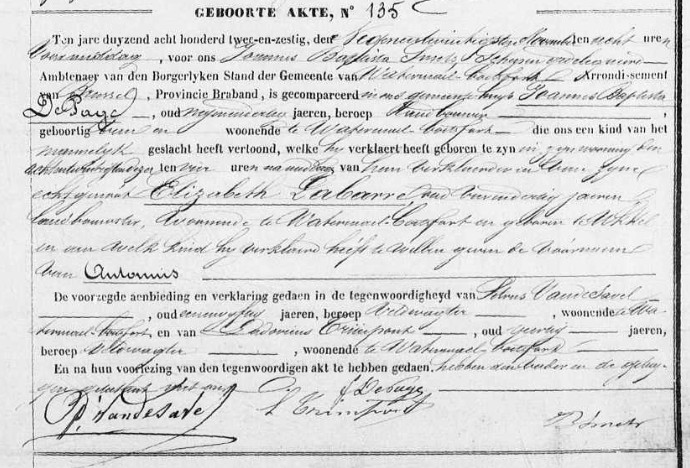 GEBOORTE AKTE, N° 135
Ten jare duyzend acht honderd twee-en-zestig, den Negenentwintigsten November ten acht uren
voormiddag, voor ons Joannes Baptista Smets Schepen
Ambtenaer van den Borgerlyken Stand der Gemeente van Watermael-boitsfort Arrondissement
van Brussel, Provincie Braband, is gecompareerd in ons gemeentehuys Joannes Baptista
De Page, oud jaeren, beroep Landbouwer
geboortig van en woonende te Watermael-boitsfort die ons een kind van het
mannelyk geslacht heeft vertoond, welke hy verklaert heeft geboren te zyn in zyne wooning den
achtentwintigsten dezer ten vier uren na middag van hem verklaerder en van zyne
echtgenoot Elizabeth Labarre, oud jaeren,
landbouwster, woonende te Watermael-boitsfort en geboren te Ukkel
en aen welk kind hy verklaerd heeft te willen geven de voornaem
van Antonius
De voorzegde aenbieding en verklaring gedaen in de tegenwoordigheyd van Petrus Vandesavel
, oud jaeren, beroep Veldwagter, woonende te Wa-
termael-boitsfort en van Ludovicus Crimpont, oud jaeren,
beroep Veldwagter, woonende te Watermael-boitsfort
En na hun voorlezing van den tegenwoordigen akt te hebben gedaen, hebben den vader en de getuy-
gen geteekend met ons
P. Vandesavel J. Depage
L. Crimpont
Smets